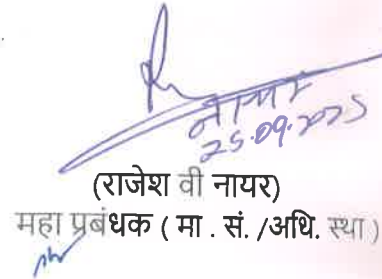 नायर
25.09.2025
(राजेश वी नायर)
महा प्रबंधक ( मा . सं. /अधि. स्था )